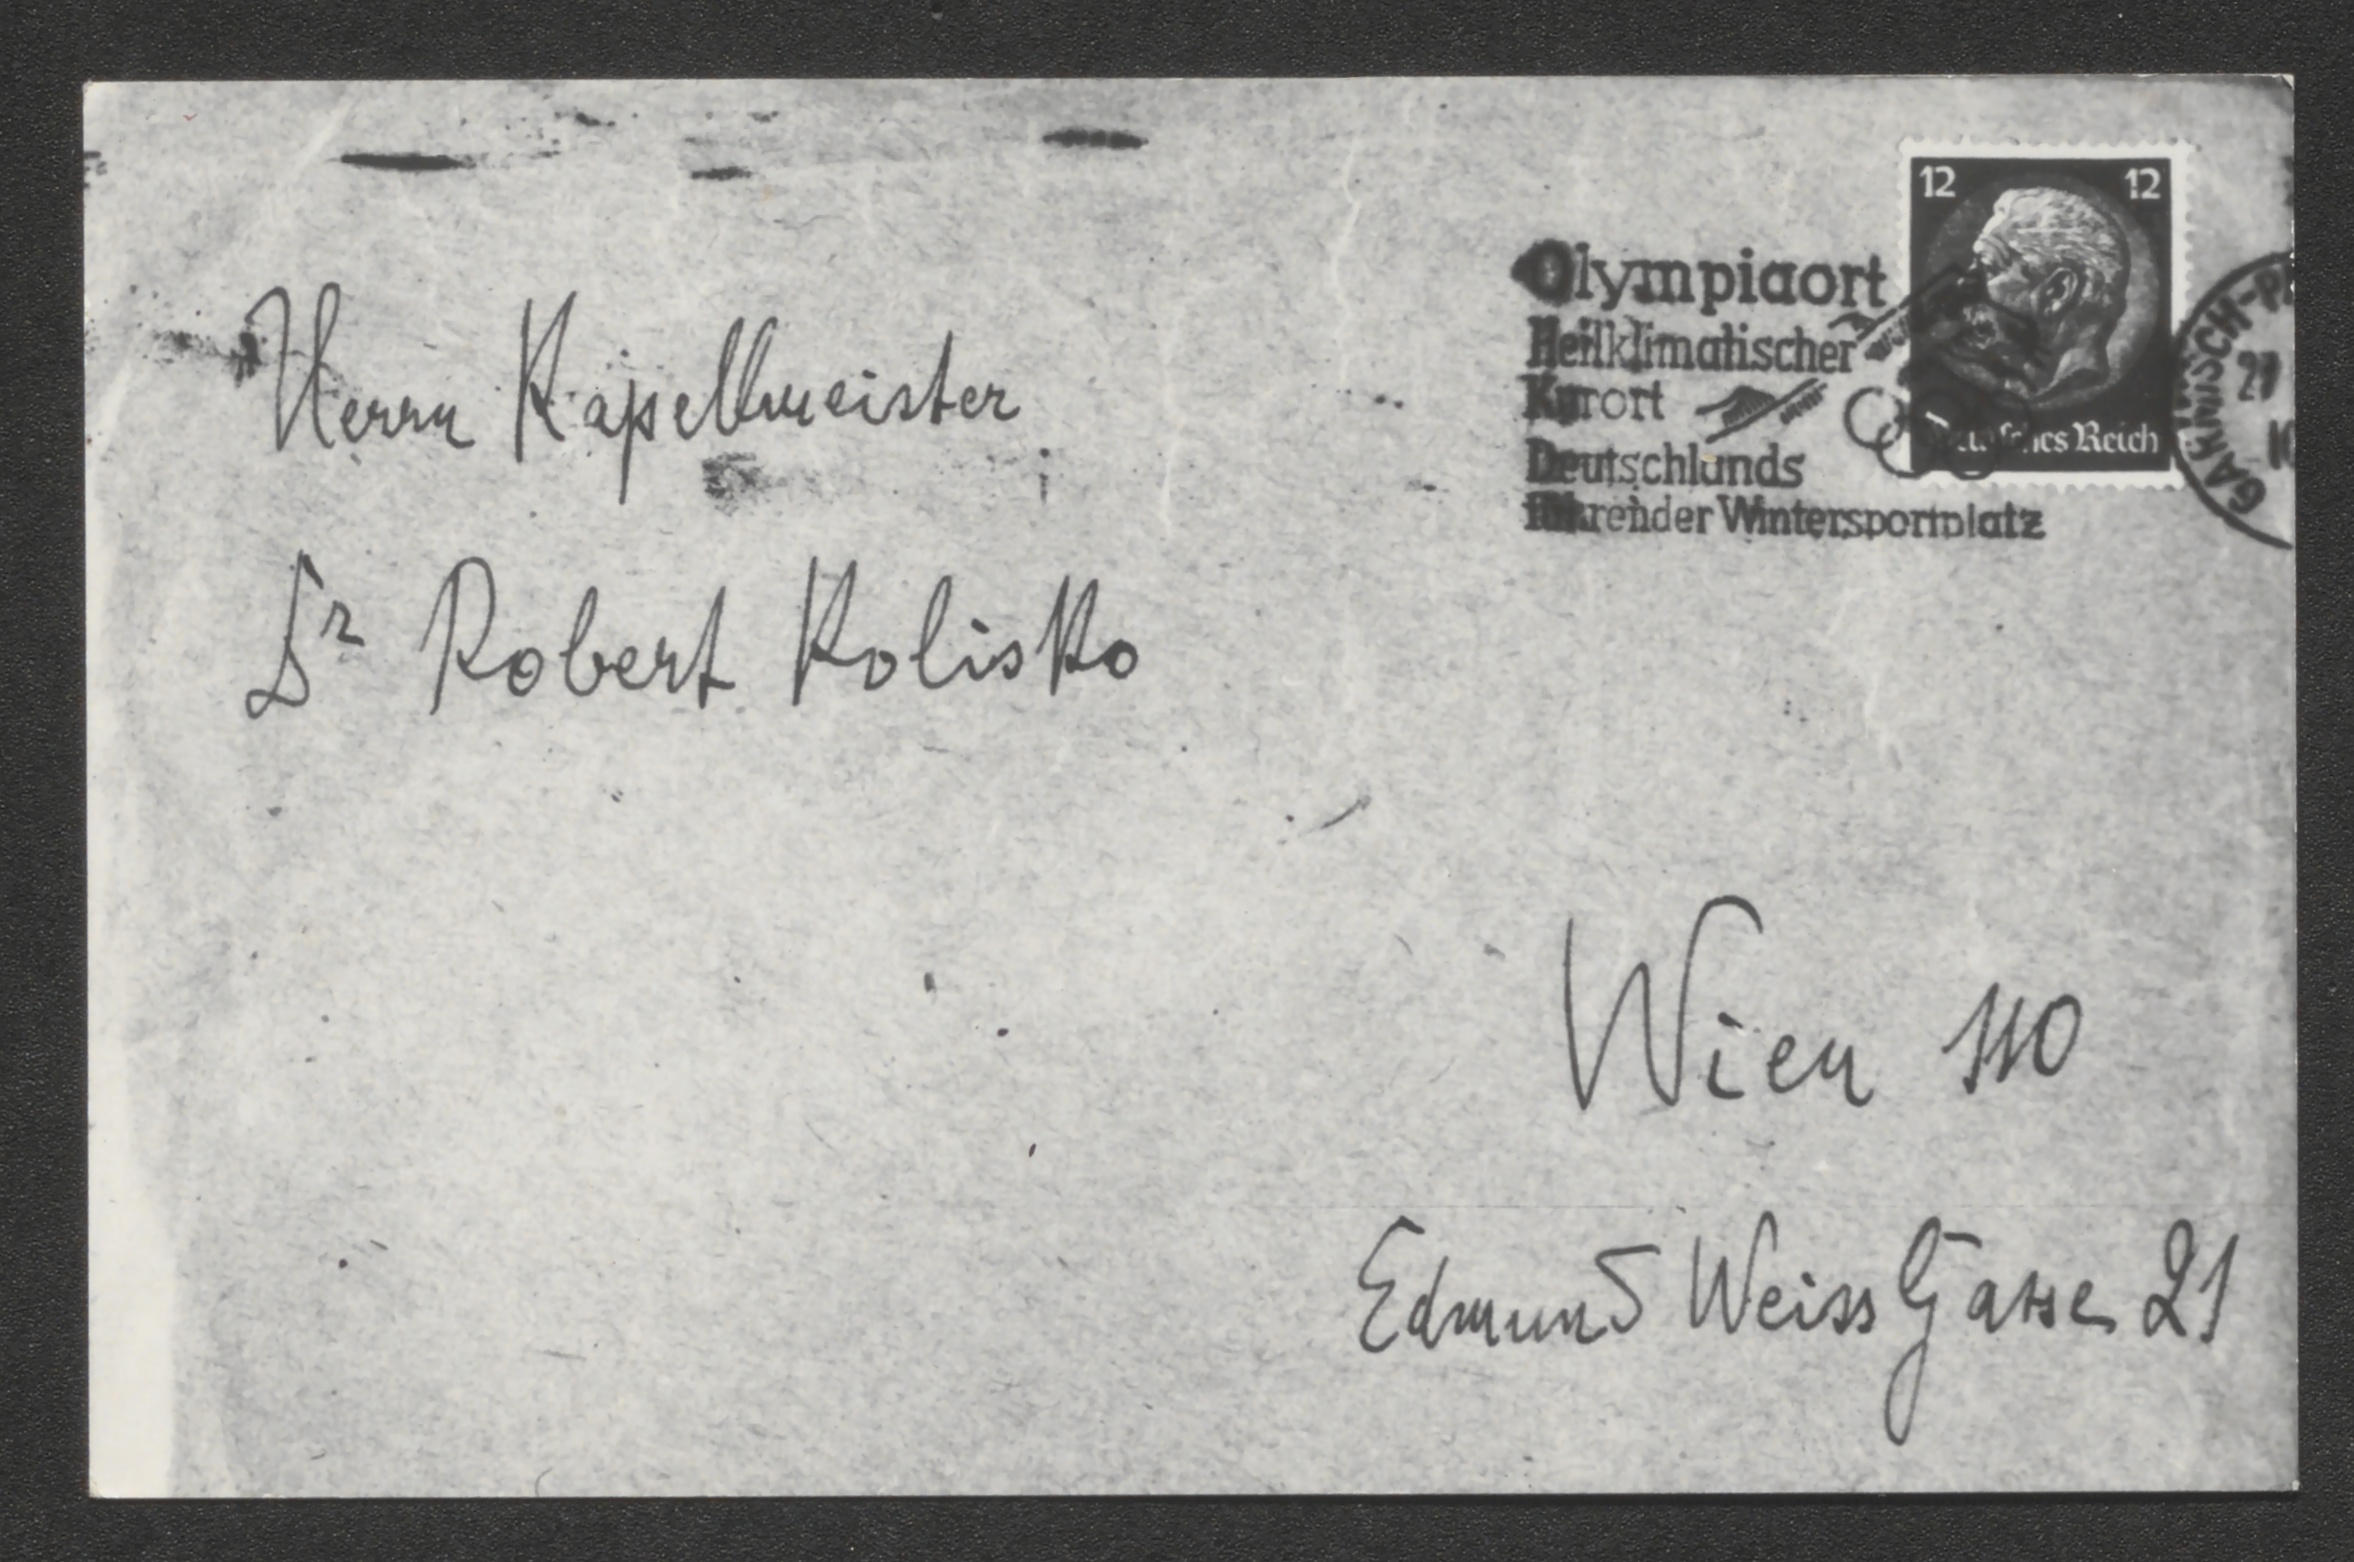 12 12
Olympiaort
Heilklimatischer
Kurort
Deutschlands
führender Wintersportplatz
Deutsches Reich
GARMISCH-P
Herrn Kapellmeister
Dr Robert Kolisko
Wien 110
Edmund Weiss Gasse 21